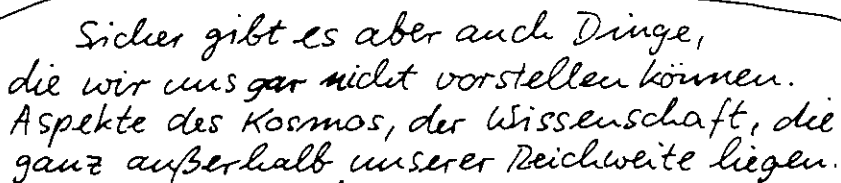 Sicher gibt es aber auch Dinge,
die wir uns gar nicht vorstellen können.
Aspekte des Kosmos, der Wissenschaft, die
ganz außerhalb unserer Reichweite liegen.